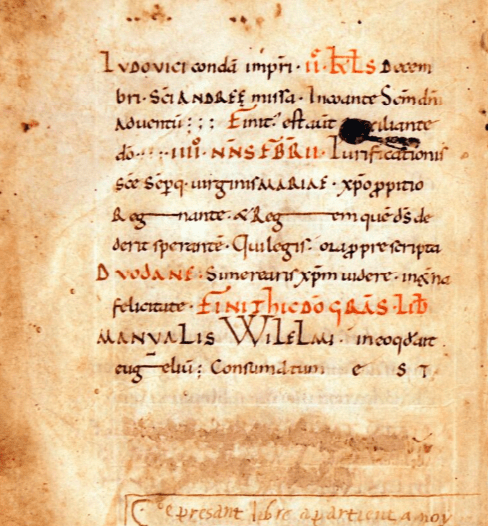 Ludovici condā imp̄ri · ii° · kłs Decem
bri · Sc̄i ANDREĘ missa · Incoante Sc̄m dn̄i
Adventū : ; : Finit' est aut̄ auxiliante
dō · : · · IIII° · NN̄S FB̄RII · Purificationis
Sc̄e Sēp̄q · virginis MARIAE · xp̄o ppitio
Reg nante · & Reg em quē ds̄ de
derit sperantē · Qui legis : ora p prescripta
DVODANE · Si merearis xp̄m videre · in ęt̄na
felicitate · FINIT hic DŌ GRĀS · LIB̄
MANVALIS WILELMI · in eo qd̄ ait
eug̅eliū ; Consumatum e s T
Ce presant libre apartient a moy